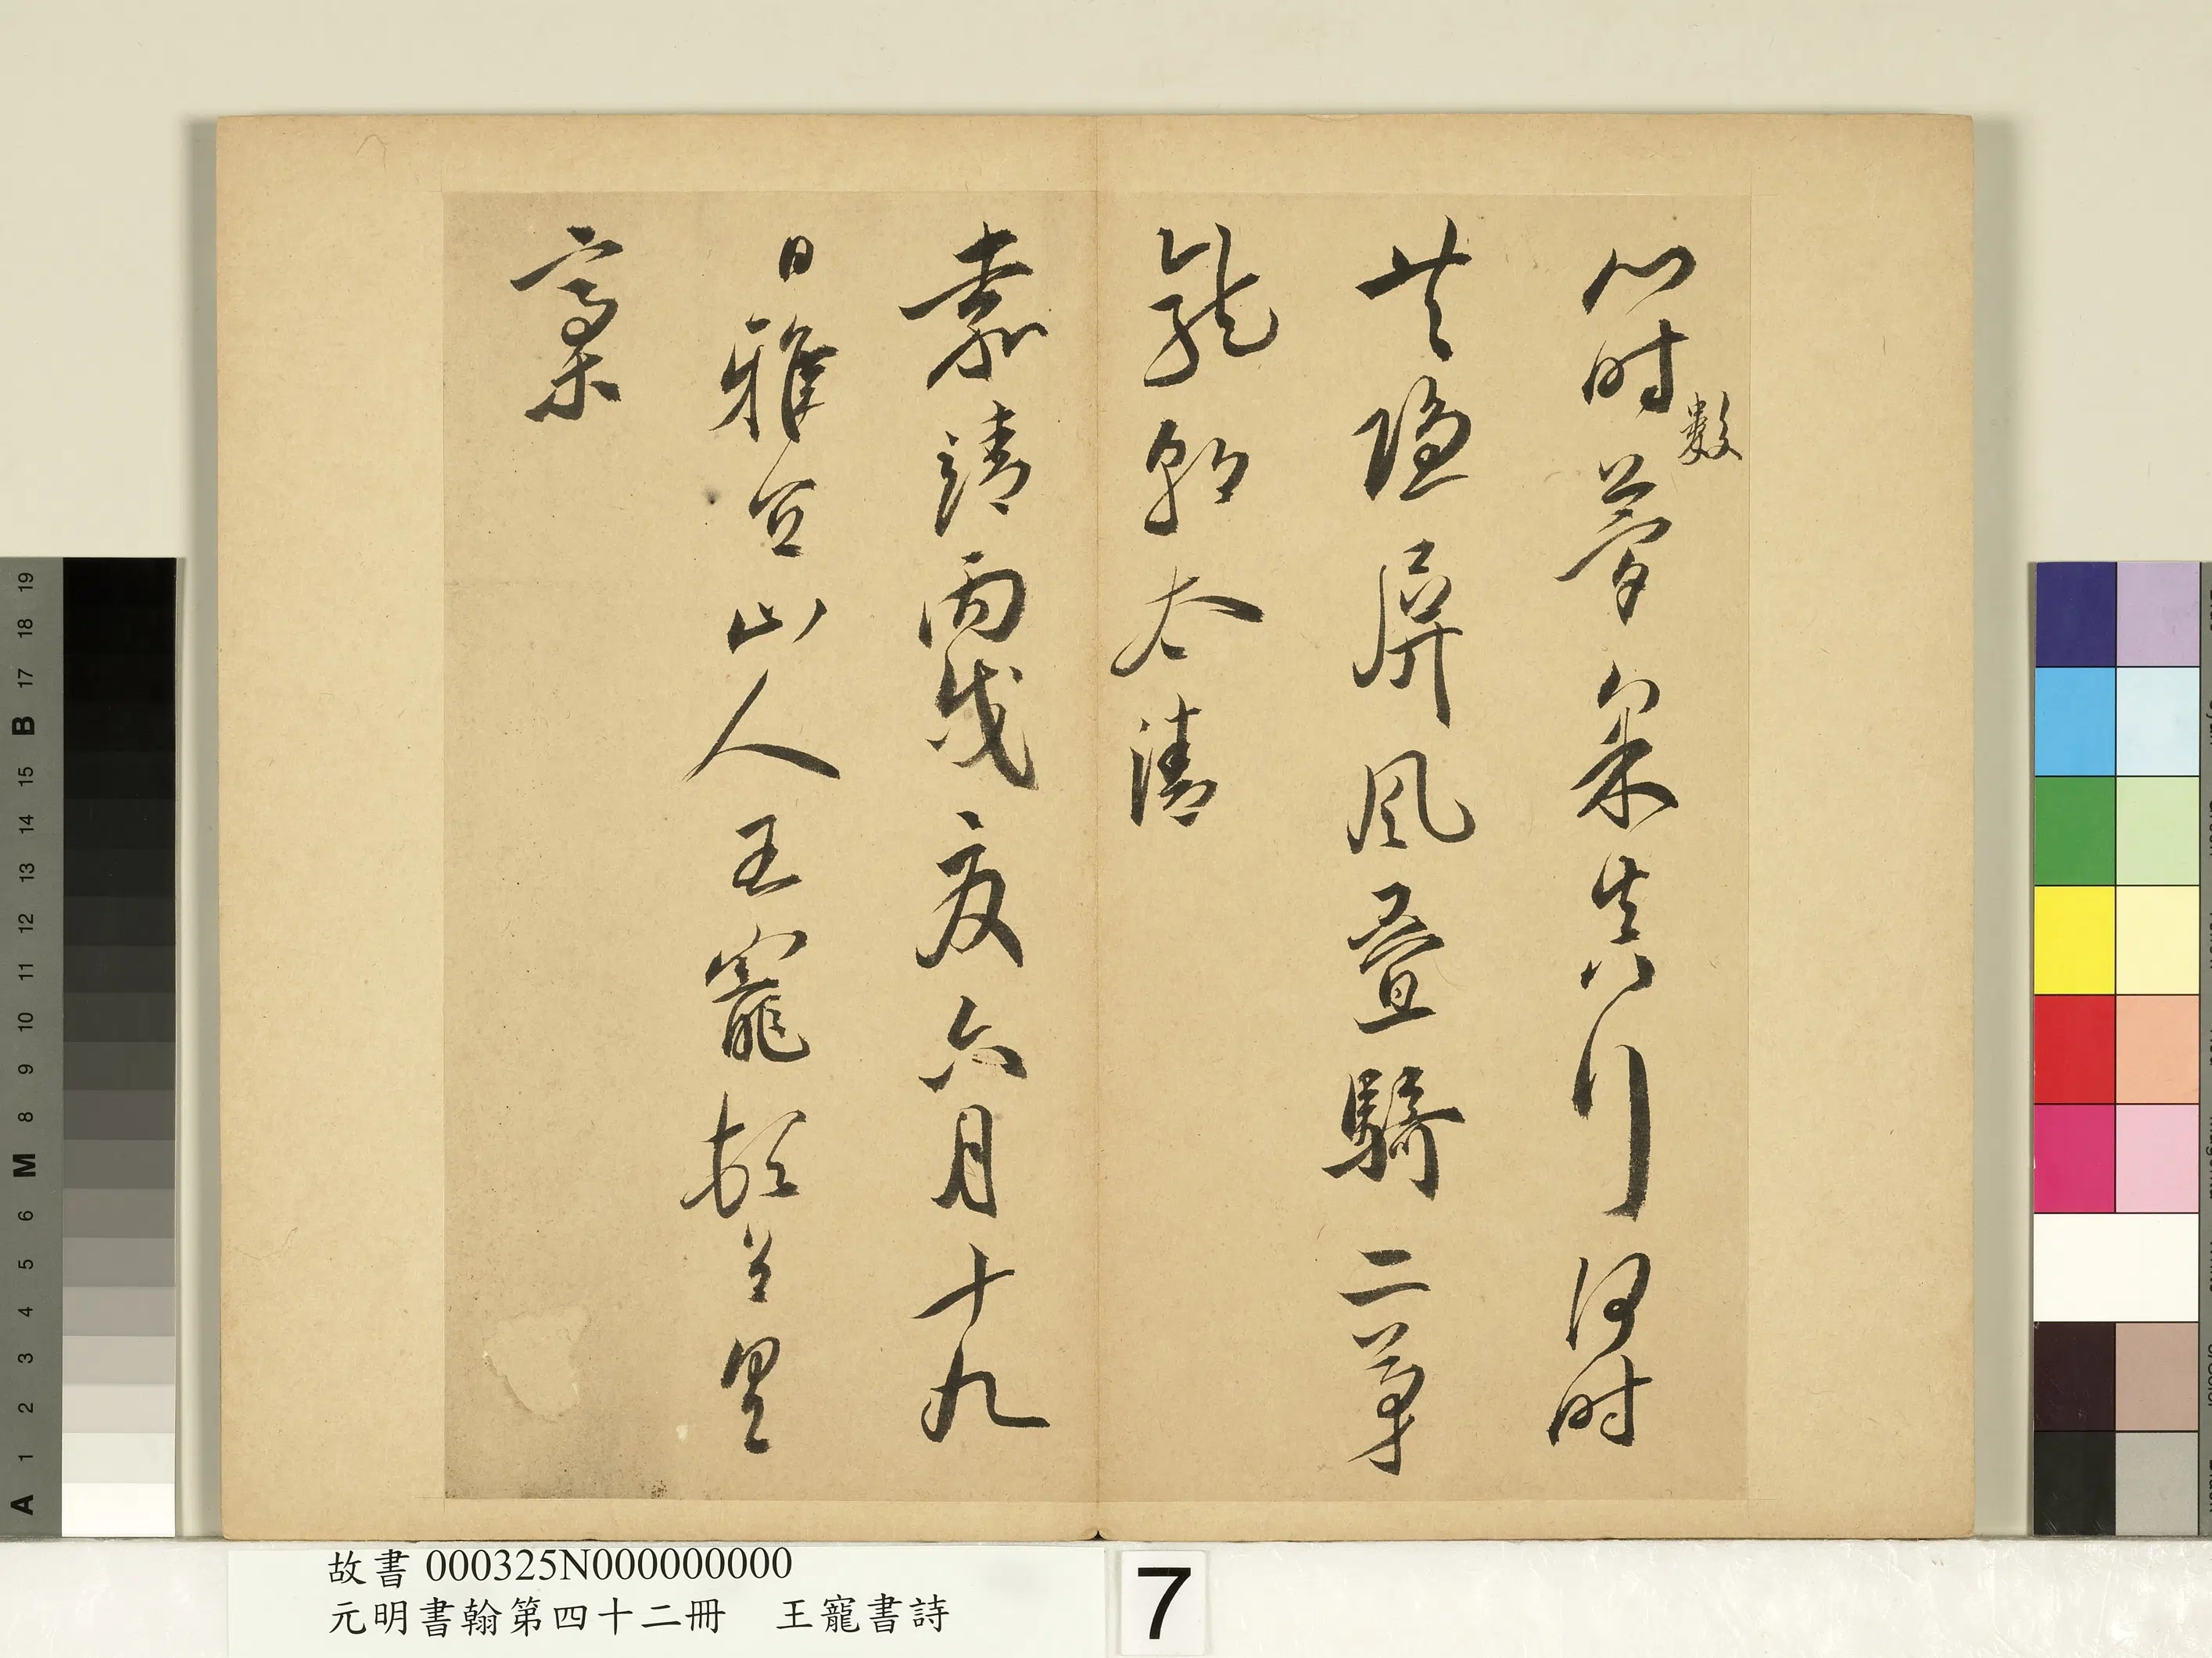 时夢行何时
數
共隐屏風疊騎二茅
龍朝太清
嘉靖丙戌夏六月十九
日雅宜山人王寵
槀
故書 000325N000000000
元明書翰第四十二冊 王寵書詩
7
19
18
17
B
15
14
13
12
11
10
9
8
M
6
5
4
3
2
1
A